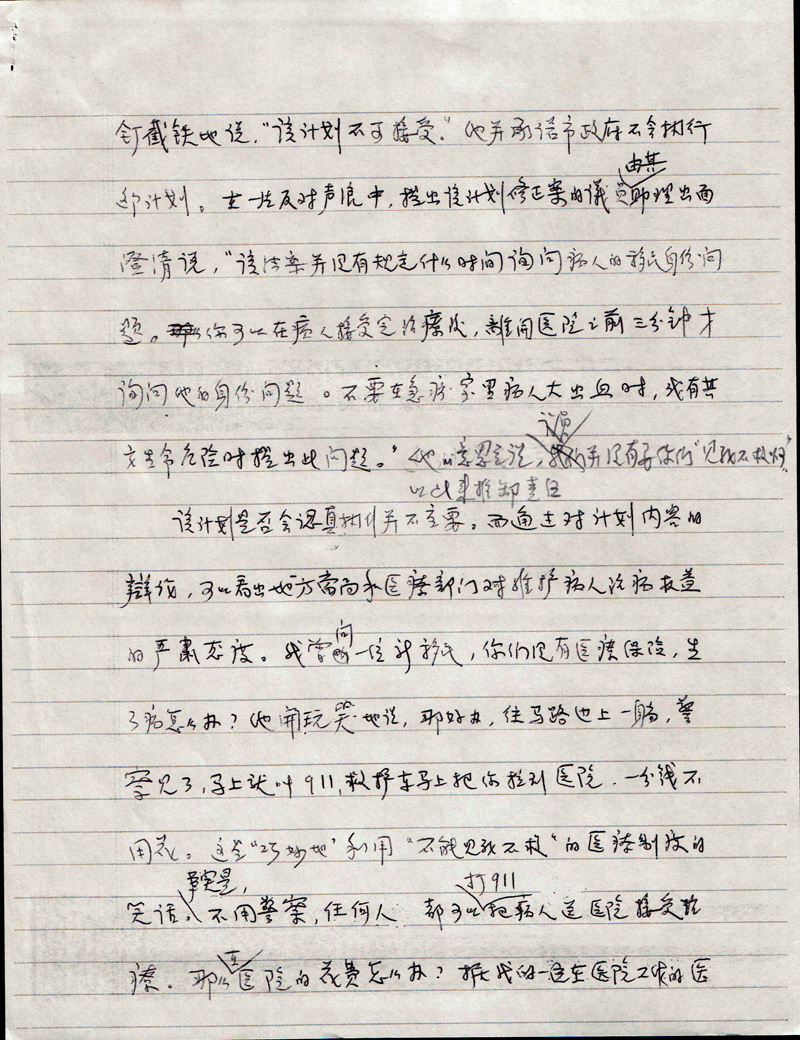 钉截铁地说，“该计划不可接受。”他并承诺市政府不会执行
这计划。在一片反对声浪中，提出该计划修正案的议员由其助理出面
澄清说，“该法案并没有规定什么时间询问病人的移民身份问
题。你可以在病人接受完治疗后，離開医院之前三分钟才
询问他的身份问题。不要在急疹室里病人大出血时，或有其
它生命危险时提出此问题。”他的意思是说，议员并没有要你们“见死不救”
以此来推卸责任
该计划是否会认真执行并不重要。而通过对计划内容的
辩论，可以看出地方当局和医療部门对维护病人治病权益
的严肃态度。我曾问一位新移民，你们没有医療保险，生
了病怎么办？他開玩笑地说，那好办，往马路边上一躺，警
察见了，马上就叫911，救护车马上把你拉到医院，一分钱不
用花。这是“巧妙地”利用“不能见死不救”的医療制度的
笑话。事实是，不用警察，任何人都可以打911把病人送医院接受治
療。那么在医院的花费怎么办？据我的一位在医院工作的医